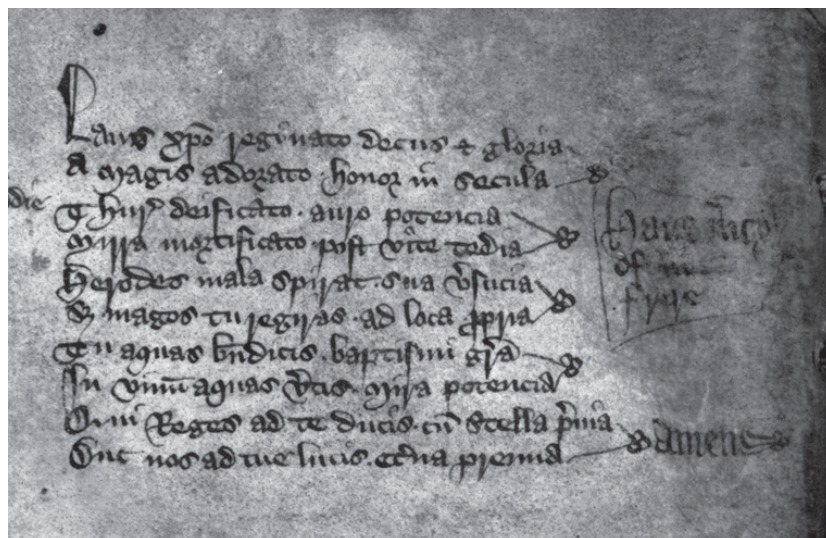 Laus xpo reginato decus & gloria
A magis adorato. honor in secula
Thure deificato. auro potencia
Mirra mortificato. post vite tedia
Herodes mala spirat. sua versucia
& magos tu regiras. ad loca propria
Tu aquas bndicis. baptismi gra
In vinum aquas vertis. mira potencia
Qui Reges ad te ducis. cu stella previa
Duc nos ad tue lucis. eterna premia
amene
die
of
frere